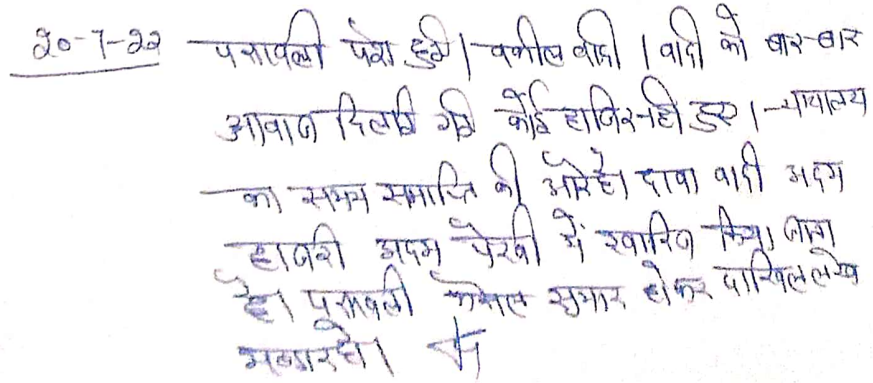 20-7-22 पत्रावली पेश हुई। वकील वादी। वादी को बार-बार
आवाज दिलाई गई कोई हाजिर नही हुए। न्यायालय
का समय समाप्ति की ओर है। दावा वादी अदम
हाजरी अदम पेरवी में खारिज किया जाता
है। पत्रावली फैसल सुमार होकर दाखिल लेख